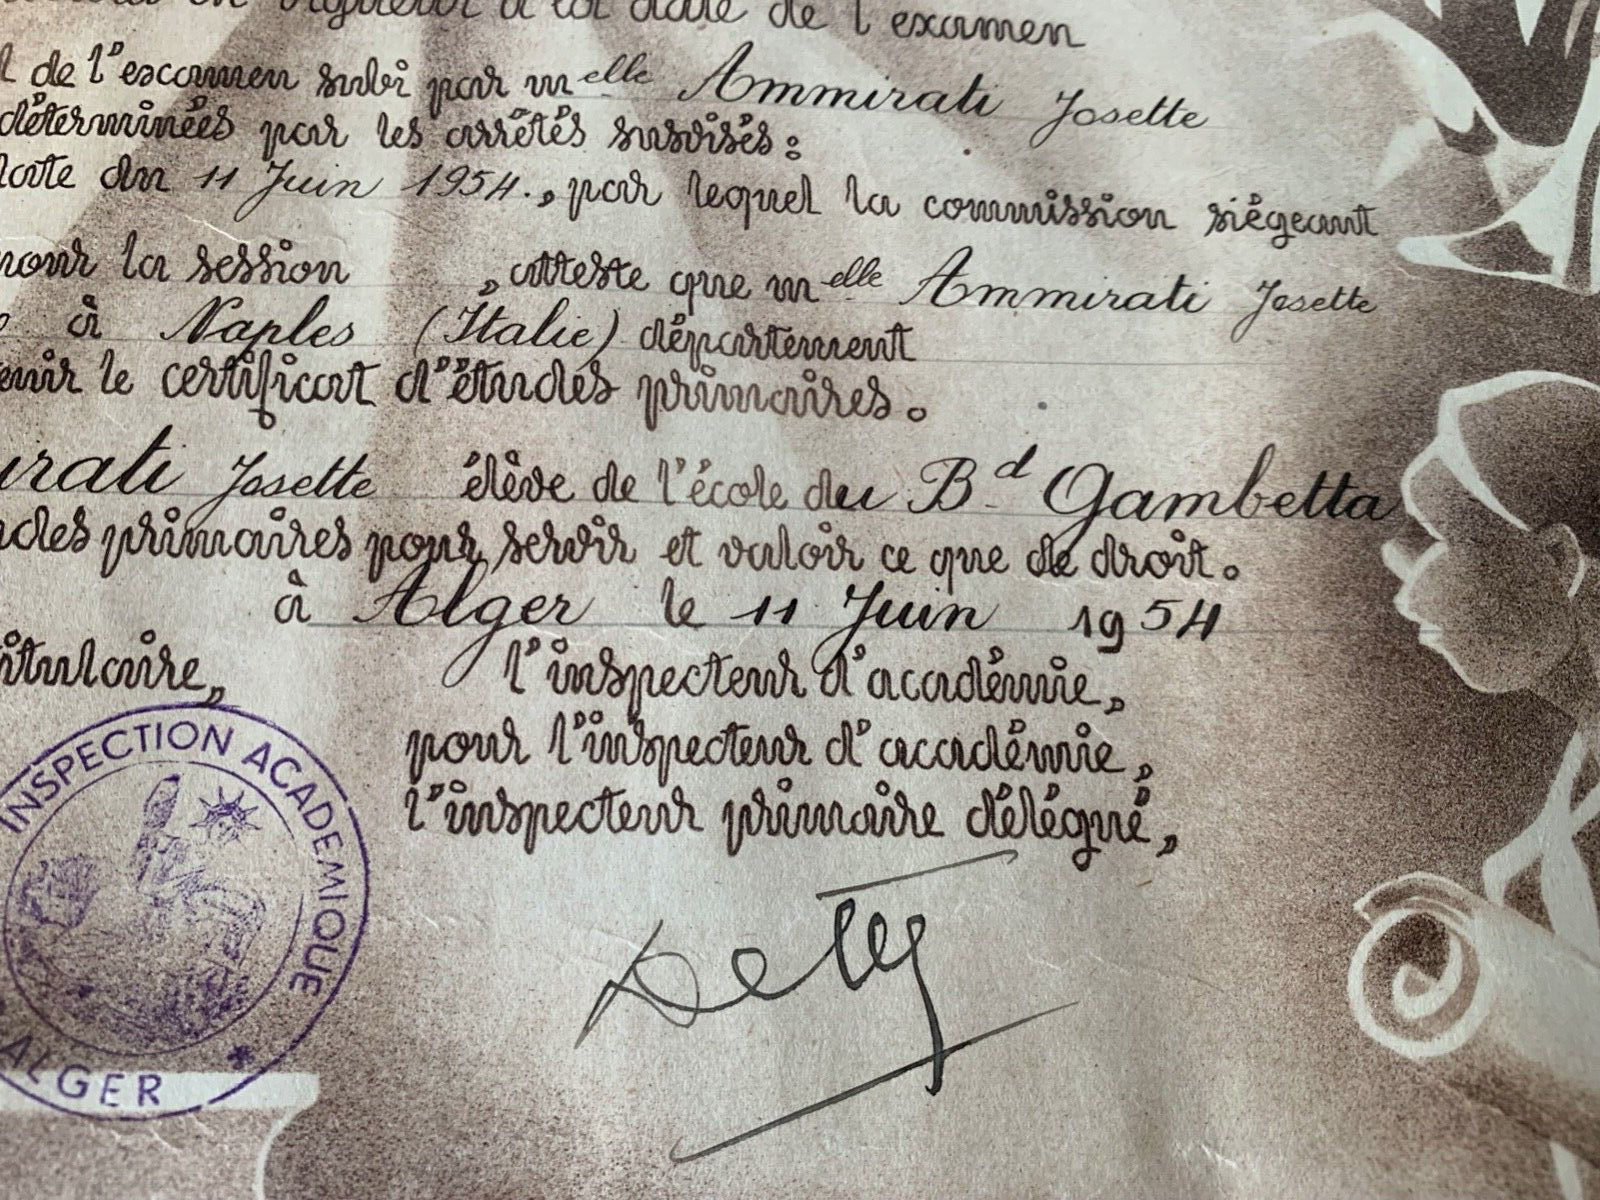 en vigueur à la date de l'examen
de l'examen subi par melle Ammirati Josette
déterminées par les arrêtés susvisés :
date du 11 Juin 1954., par lequel la commission siégeant
pour la session , atteste que melle Ammirati Josette
à Naples (Italie) département
enir le certificat d'études primaires.
irati Josette élève de l'école du Bd Gambetta
udes primaires pour servir et valoir ce que de droit.
à Alger le 11 Juin 1954
itulaire, l'inspecteur d'académie,
pour l'inspecteur d'académie,
l'inspecteur primaire délégué,
INSPECTION ACADEMIQUE
ALGER